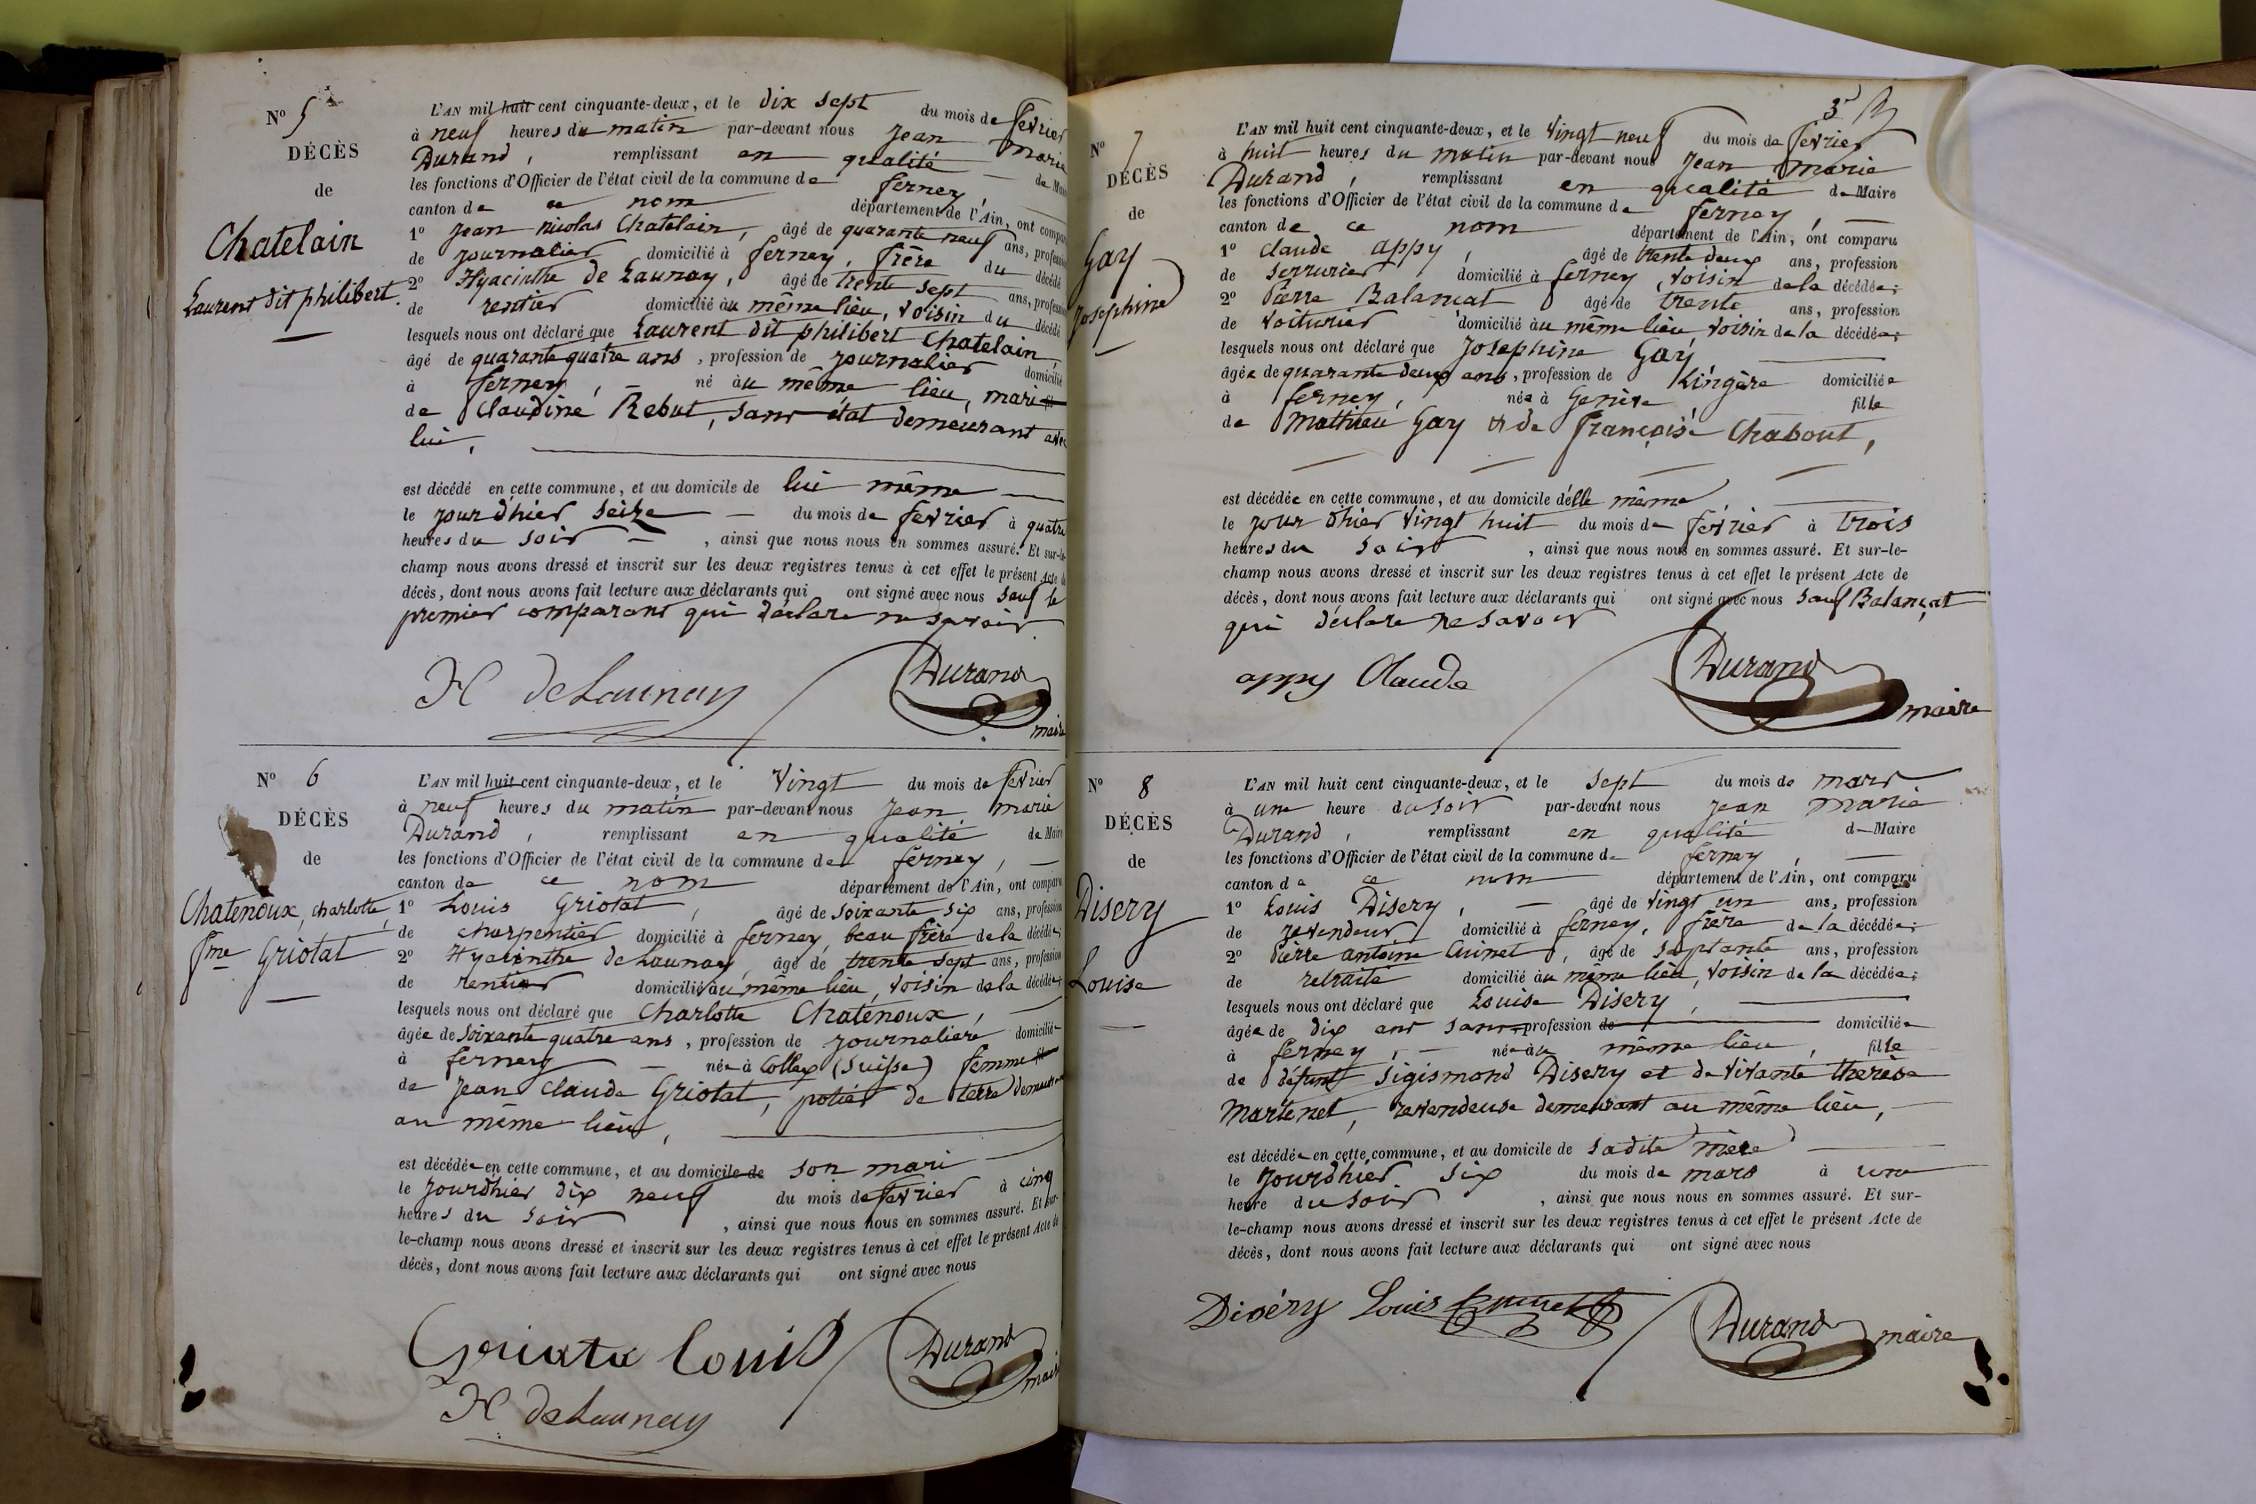 N° 5
DÉCÈS
de
Chatelain
Laurent dit philibert.
L'AN mil huit cent cinquante-deux, et le dix sept du mois de fevrier
à neuf heures du matin par-devant nous Jean Marie
Durand, remplissant en qualité de Maire
les fonctions d'Officier de l'état civil de la commune de ferney,
canton de ce nom département de l'Ain, ont comparu
1° Jean nicolas Chatelain, âgé de quarante neuf ans, profession
de journalier domicilié à ferney, frère du décédé
2° Hyacinthe de Launay, âgé de trente sept ans, profession
de rentier domicilié au même lieu, voisin du décédé
lesquels nous ont déclaré que Laurent dit philibert Chatelain,
âgé de quarante quatre ans, profession de journalier domicilié
à ferney, né au même lieu, mari fil
de Claudine Rebut, sans état demeurant avec
lui,
est décédé en cette commune, et au domicile de lui même
le jour d'hier seize du mois de fevrier à quatre
heures du soir, ainsi que nous nous en sommes assuré. Et sur-le-
champ nous avons dressé et inscrit sur les deux registres tenus à cet effet le présent Acte de
décès, dont nous avons fait lecture aux déclarants qui ont signé avec nous sauf le
premier comparant qui déclare ne savoir.
H deLaunay Durand
maire
N° 6
DÉCÈS
de
Chatenoux, charlotte,
fme Griotat
L'AN mil huit cent cinquante-deux, et le Vingt du mois de fevrier
à neuf heures du matin par-devant nous Jean Marie
Durand, remplissant en qualité de Maire
les fonctions d'Officier de l'état civil de la commune de ferney,
canton de ce nom département de l'Ain, ont comparu
1° Louis Griotat, âgé de soixante six ans, profession
de charpentier domicilié à ferney, beau frère de la décédée;
2° Hyacinthe de Launay, âgé de trente sept ans, profession
de rentier domicilié au même lieu, voisin de la décédée;
lesquels nous ont déclaré que Charlotte Chatenoux,
âgée de soixante quatre ans, profession de journaliere domiciliée
à ferney née à Collex (Suisse) femme fil
de Jean Claude Griotat, potier de terre demeurant
au même lieu,
est décédée en cette commune, et au domicile de son mari
le jour d'hier dix neuf du mois de fevrier à cinq
heures du soir, ainsi que nous nous en sommes assuré. Et sur-
le-champ nous avons dressé et inscrit sur les deux registres tenus à cet effet le présent Acte de
décès, dont nous avons fait lecture aux déclarants qui ont signé avec nous
Griata Louis Durand
maire
H deLaunay
N° 7
DÉCÈS
de
Gay
Josephine
L'AN mil huit cent cinquante-deux, et le Vingt neuf du mois de fevrier
à huit heures du matin par-devant nous Jean Marie
Durand, remplissant en qualité de Maire
les fonctions d'Officier de l'état civil de la commune de ferney,
canton de ce nom département de l'Ain, ont comparu
1° Claude appy, âgé de trente deux ans, profession
de serrurier domicilié à ferney, voisin de la décédée;
2° Pierre Balançat âgé de trente ans, profession
de voiturier domicilié au même lieu, voisin de la décédée;
lesquels nous ont déclaré que Josephine Gay,
âgée de quarante deux ans, profession de Lingère domiciliée
à ferney, née à Genève fille
de Mathieu Gay & de françoise Chabout,
est décédée en cette commune, et au domicile d'elle même,
le jour d'hier vingt huit du mois de fevrier à trois
heures du soir, ainsi que nous nous en sommes assuré. Et sur-le-
champ nous avons dressé et inscrit sur les deux registres tenus à cet effet le présent Acte de
décès, dont nous avons fait lecture aux déclarants qui ont signé avec nous sauf Balançat
qui déclare ne savoir
appy Claude Durand
maire
N° 8
DÉCÈS
de
Disery
Louise
L'AN mil huit cent cinquante-deux, et le sept du mois de mars
à une heure du soir par-devant nous Jean Marie
Durand, remplissant en qualité de Maire
les fonctions d'Officier de l'état civil de la commune de ferney,
canton de ce nom département de l'Ain, ont comparu
1° Louis Disery, âgé de vingt un ans, profession
de revendeur domicilié à ferney, frère de la décédée;
2° Pierre antoine Cuinet, âgé de septante ans, profession
de retraité domicilié au même lieu, voisin de la décédée;
lesquels nous ont déclaré que Louise Disery,
âgée de dix ans sans profession de domiciliée
à ferney, née au même lieu, fille
de défunt Sigismond Disery et de vivante therèse
Martenet, revendeuse demeurant au même lieu,
est décédée en cette commune, et au domicile de sadite mère
le jour d'hier six du mois de mars à une
heure du soir, ainsi que nous nous en sommes assuré. Et sur-
le-champ nous avons dressé et inscrit sur les deux registres tenus à cet effet le présent Acte de
décès, dont nous avons fait lecture aux déclarants qui ont signé avec nous
Diséry Louis Cuinet Durand maire